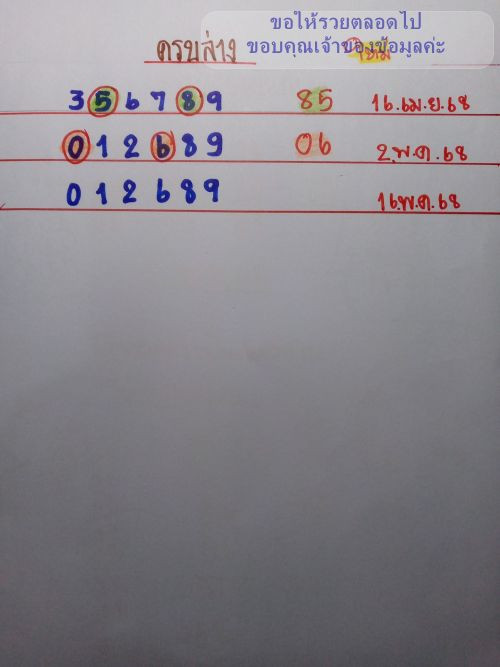 ขอให้รวยตลอดไป
ขอบคุณเจ้าของข้อมูลค่ะ
ครบล่าง
3 5 6 7 8 9 85 16.เม.ย.68
0 1 2 6 8 9 06 2.พ.ค.68
0 1 2 6 8 9 16.พ.ค.68